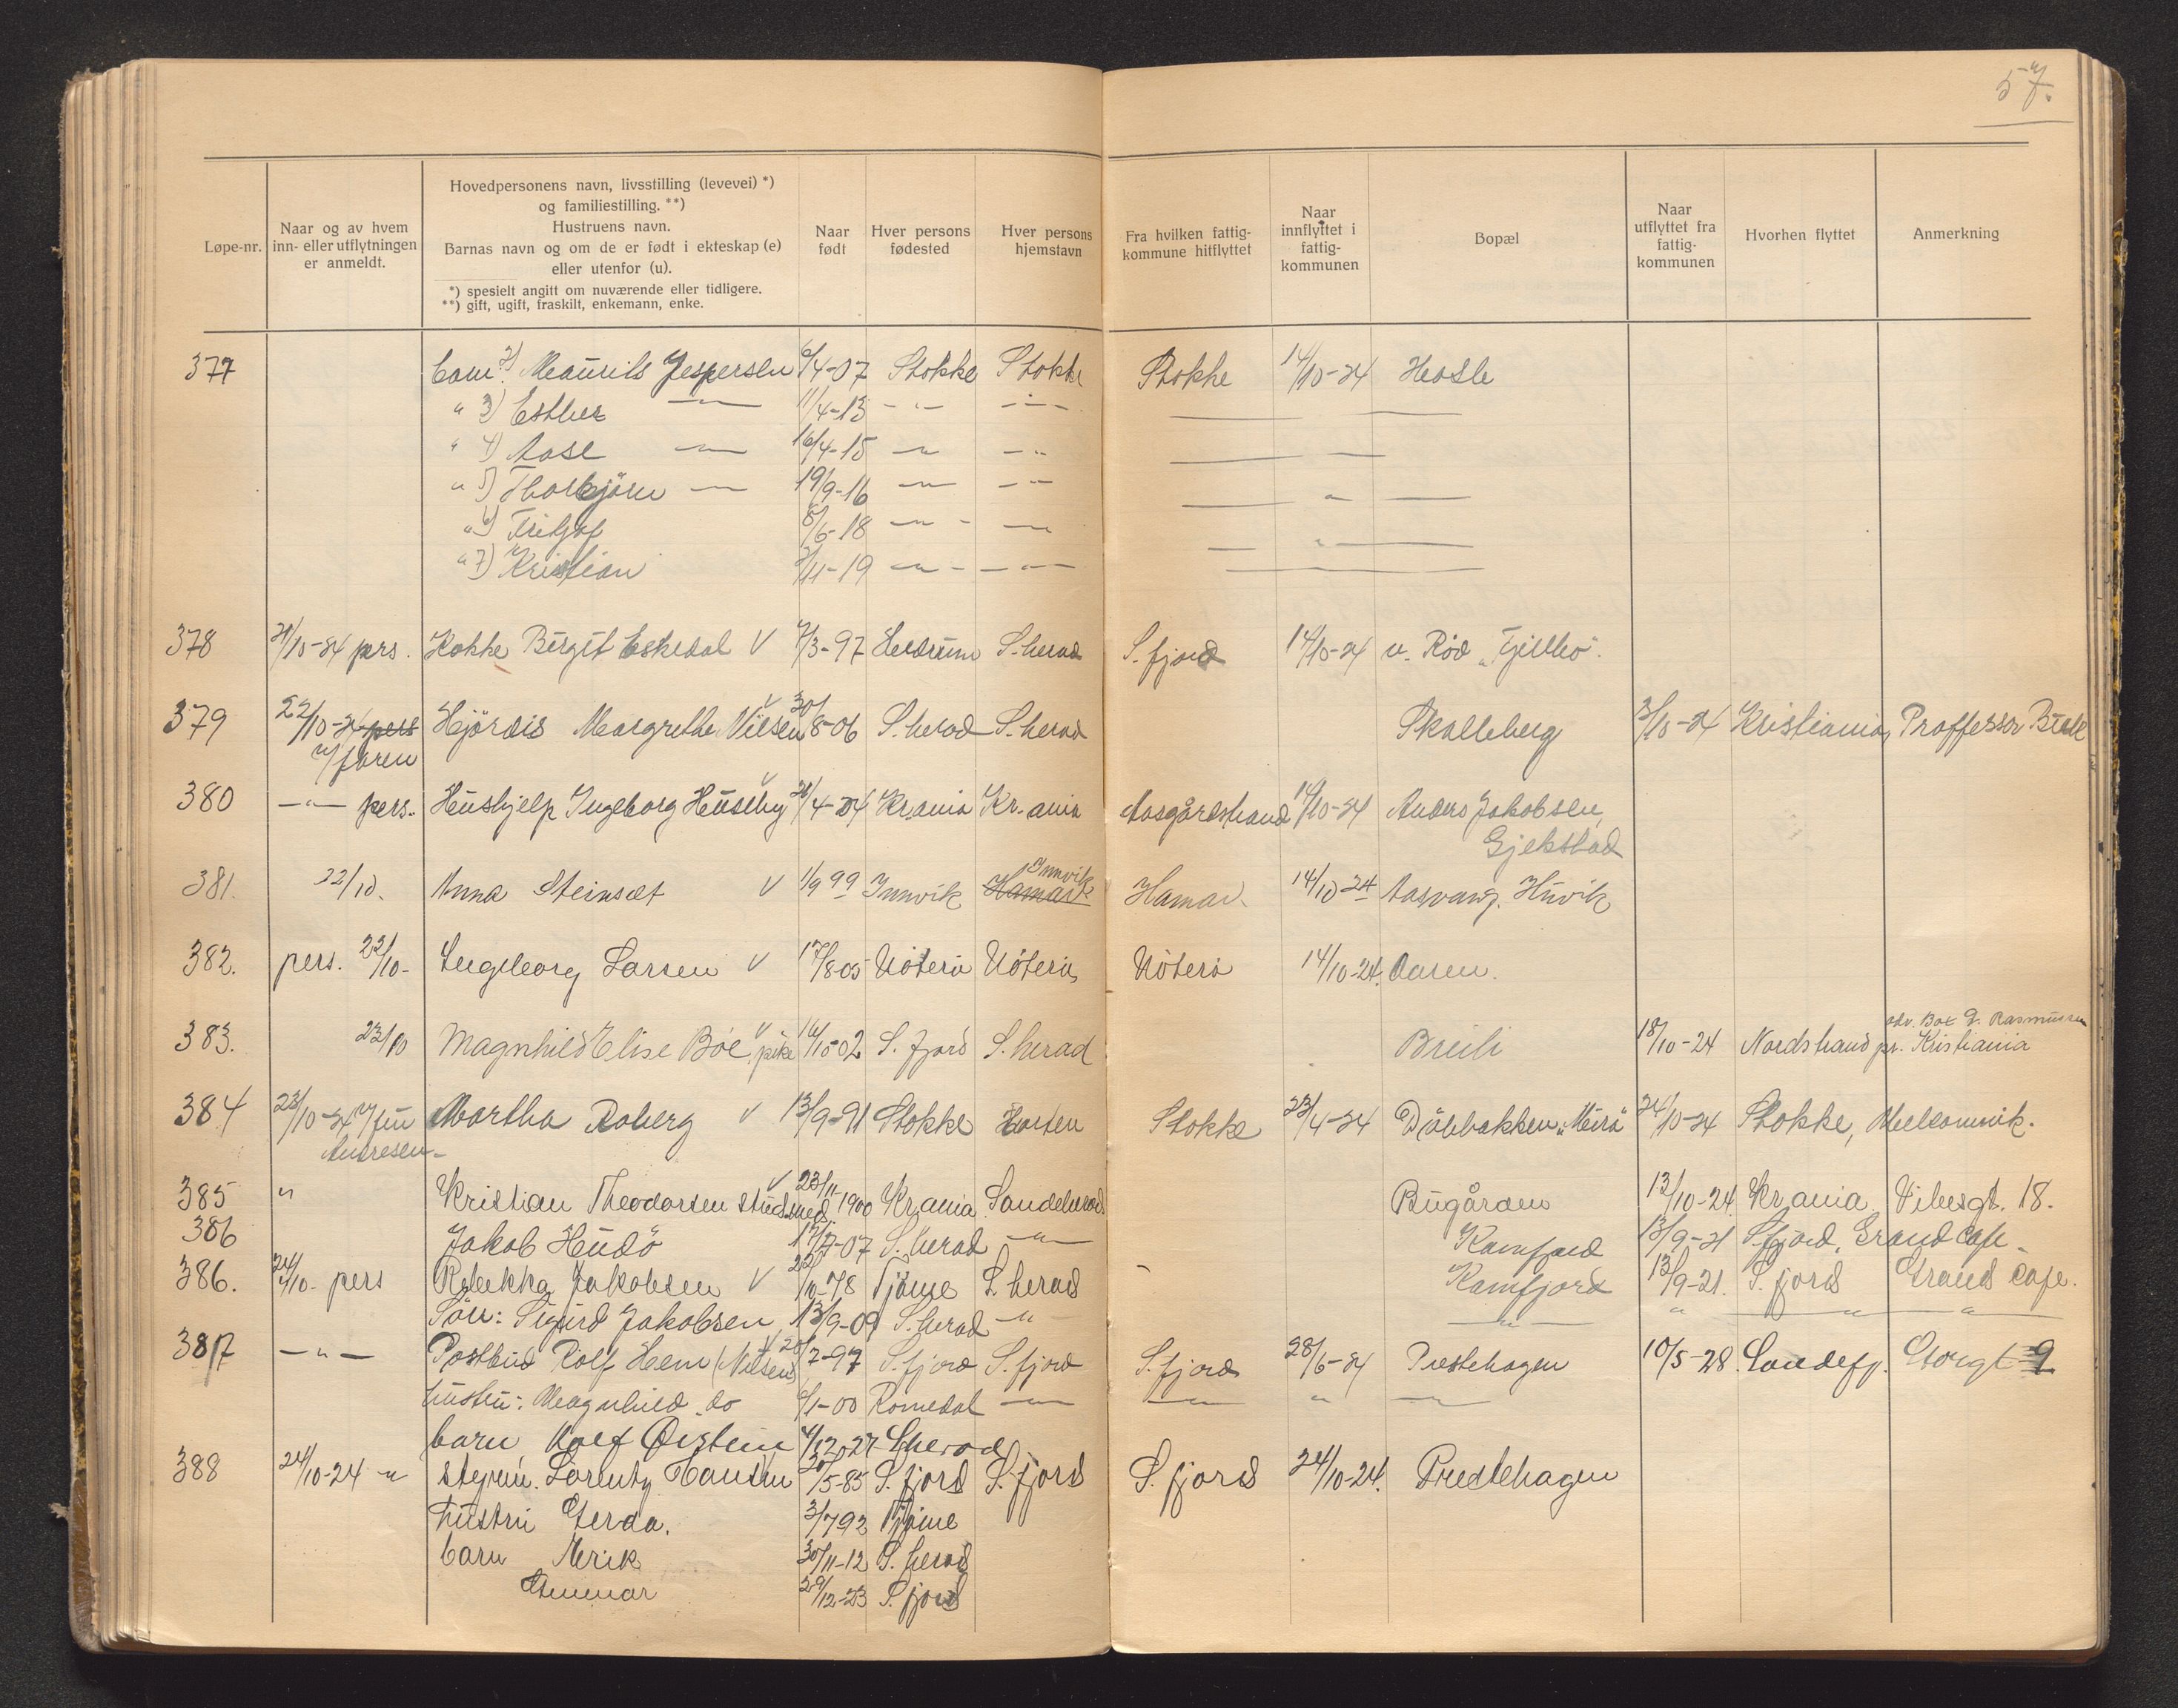 57.
Løpe-nr.
Naar og av hvem
inn- eller utflytningen
er anmeldt.
Hovedpersonens navn, livsstilling (levevei) *)
og familiestilling. **)
Hustruens navn.
Barnas navn og om de er født i ekteskap (e)
eller utenfor (u).
*) spesielt angitt om nuværende eller tidligere.
**) gift, ugift, fraskilt, enkemann, enke.
Naar
født
Hver persons
fødested
Hver persons
hjemstavn
Fra hvilken fattig-
kommune hitflyttet
Naar
innflyttet i
fattig-
kommunen
Bopæl
Naar
utflyttet fra
fattig-
kommunen
Hvorhen flyttet
Anmerkning
377 barn 2) Jespersen 6/4-07 Stokke Stokke Stokke 14/10-24 Hasle
" 3) Esther — " — 11/4-13 - " - - " -
" 4) Aase — " — 16/4-15 — " — - "
" 5) Thorbjörn — " — 19/9-16 — " — - " -
" 6) Fritjof 8/6-18 — " - — "
" 7) Kristian /11-19 — " - — " —
378 21/10-24 pers. Kokke Birgit Eskedal V 7/3-97 Hedrum S.herad S.fjord 14/10-24 v. Röd "Fjellbo".
379 22/10-24 pers Hjördis Margrethe Nilsen V 30/8-06 S.herad S.herad Skalleberg 3/10-24 Kristiania, Proffessor
v/faren
380 — " — pers. Hushjelp Ingeborg Huseby V /4-04 Kr.ania Kr.ania Aasgårdstrand 14/10-24 Anders Jakobsen,
Gjekstad
Innvik
381. 22/10. Anna Steinset V 1/9 99 Innvik Hamar Hamar. 14/10-24 Aasvang. Huvik
382. pers. 22/10- Ingeborg Larsen V 17/8-05 Nöterö Nöterö Nöterö 14/10-24. Aasen.
adv. Box D. Rasmussen
383. 23/10 Magnhild Elise Böe, pike V 16/10-02 S.fjord S.herad Breili 18/10-24 Nordstrand pr. Kristiania
384 23/10-24 v/fru Martha Roberg V 13/9-91 Stokke Horten Stokke 23/4-24 "Mirö" 24/10-24 Stokke, Melsomvik.
Andresen-
385 " Kristian Theodorsen stud.med. V 23/11-1900 Kr.ania Sandeherad. Bugården 13/10-24. Kr.ania Vibesgt. 18.
386 Jakob Hüdö 17/7-07 S.herad — " — Kamfjord 13/9-21 S.fjord, Grand Cafe
386. 24/10- pers Rebekka Jakobsen V 22/10-78 Tjöme S.herad - Kamfjord 13/9-21. S.fjord Grand Cafe.
Sön: Sigurd Jakobsen 13/9-09 S.herad — " — — " — " — " — "
387 — " — Postbud Rolf Hem (Nilsen) V 20/7-97 S.fjord S.fjord S.fjord 28/6-24 Prestehagen 10/5-28. Sandefj. Storgt 9
hustru: Magnhild do 6/1-00 Romedal — " — — " — " — " —
barn Rolf Øistein 4/12027 S.herad
388 24/10-24 " Lorentz Hansen 30/5-85 S.fjord S.fjord S.fjord 24/10-24. Prestehagen
hustru Gerda. 3/7 92 Tjöme
barn Arik 30/11-12 S.herad
Gunnar 29/12-23 S.fjord